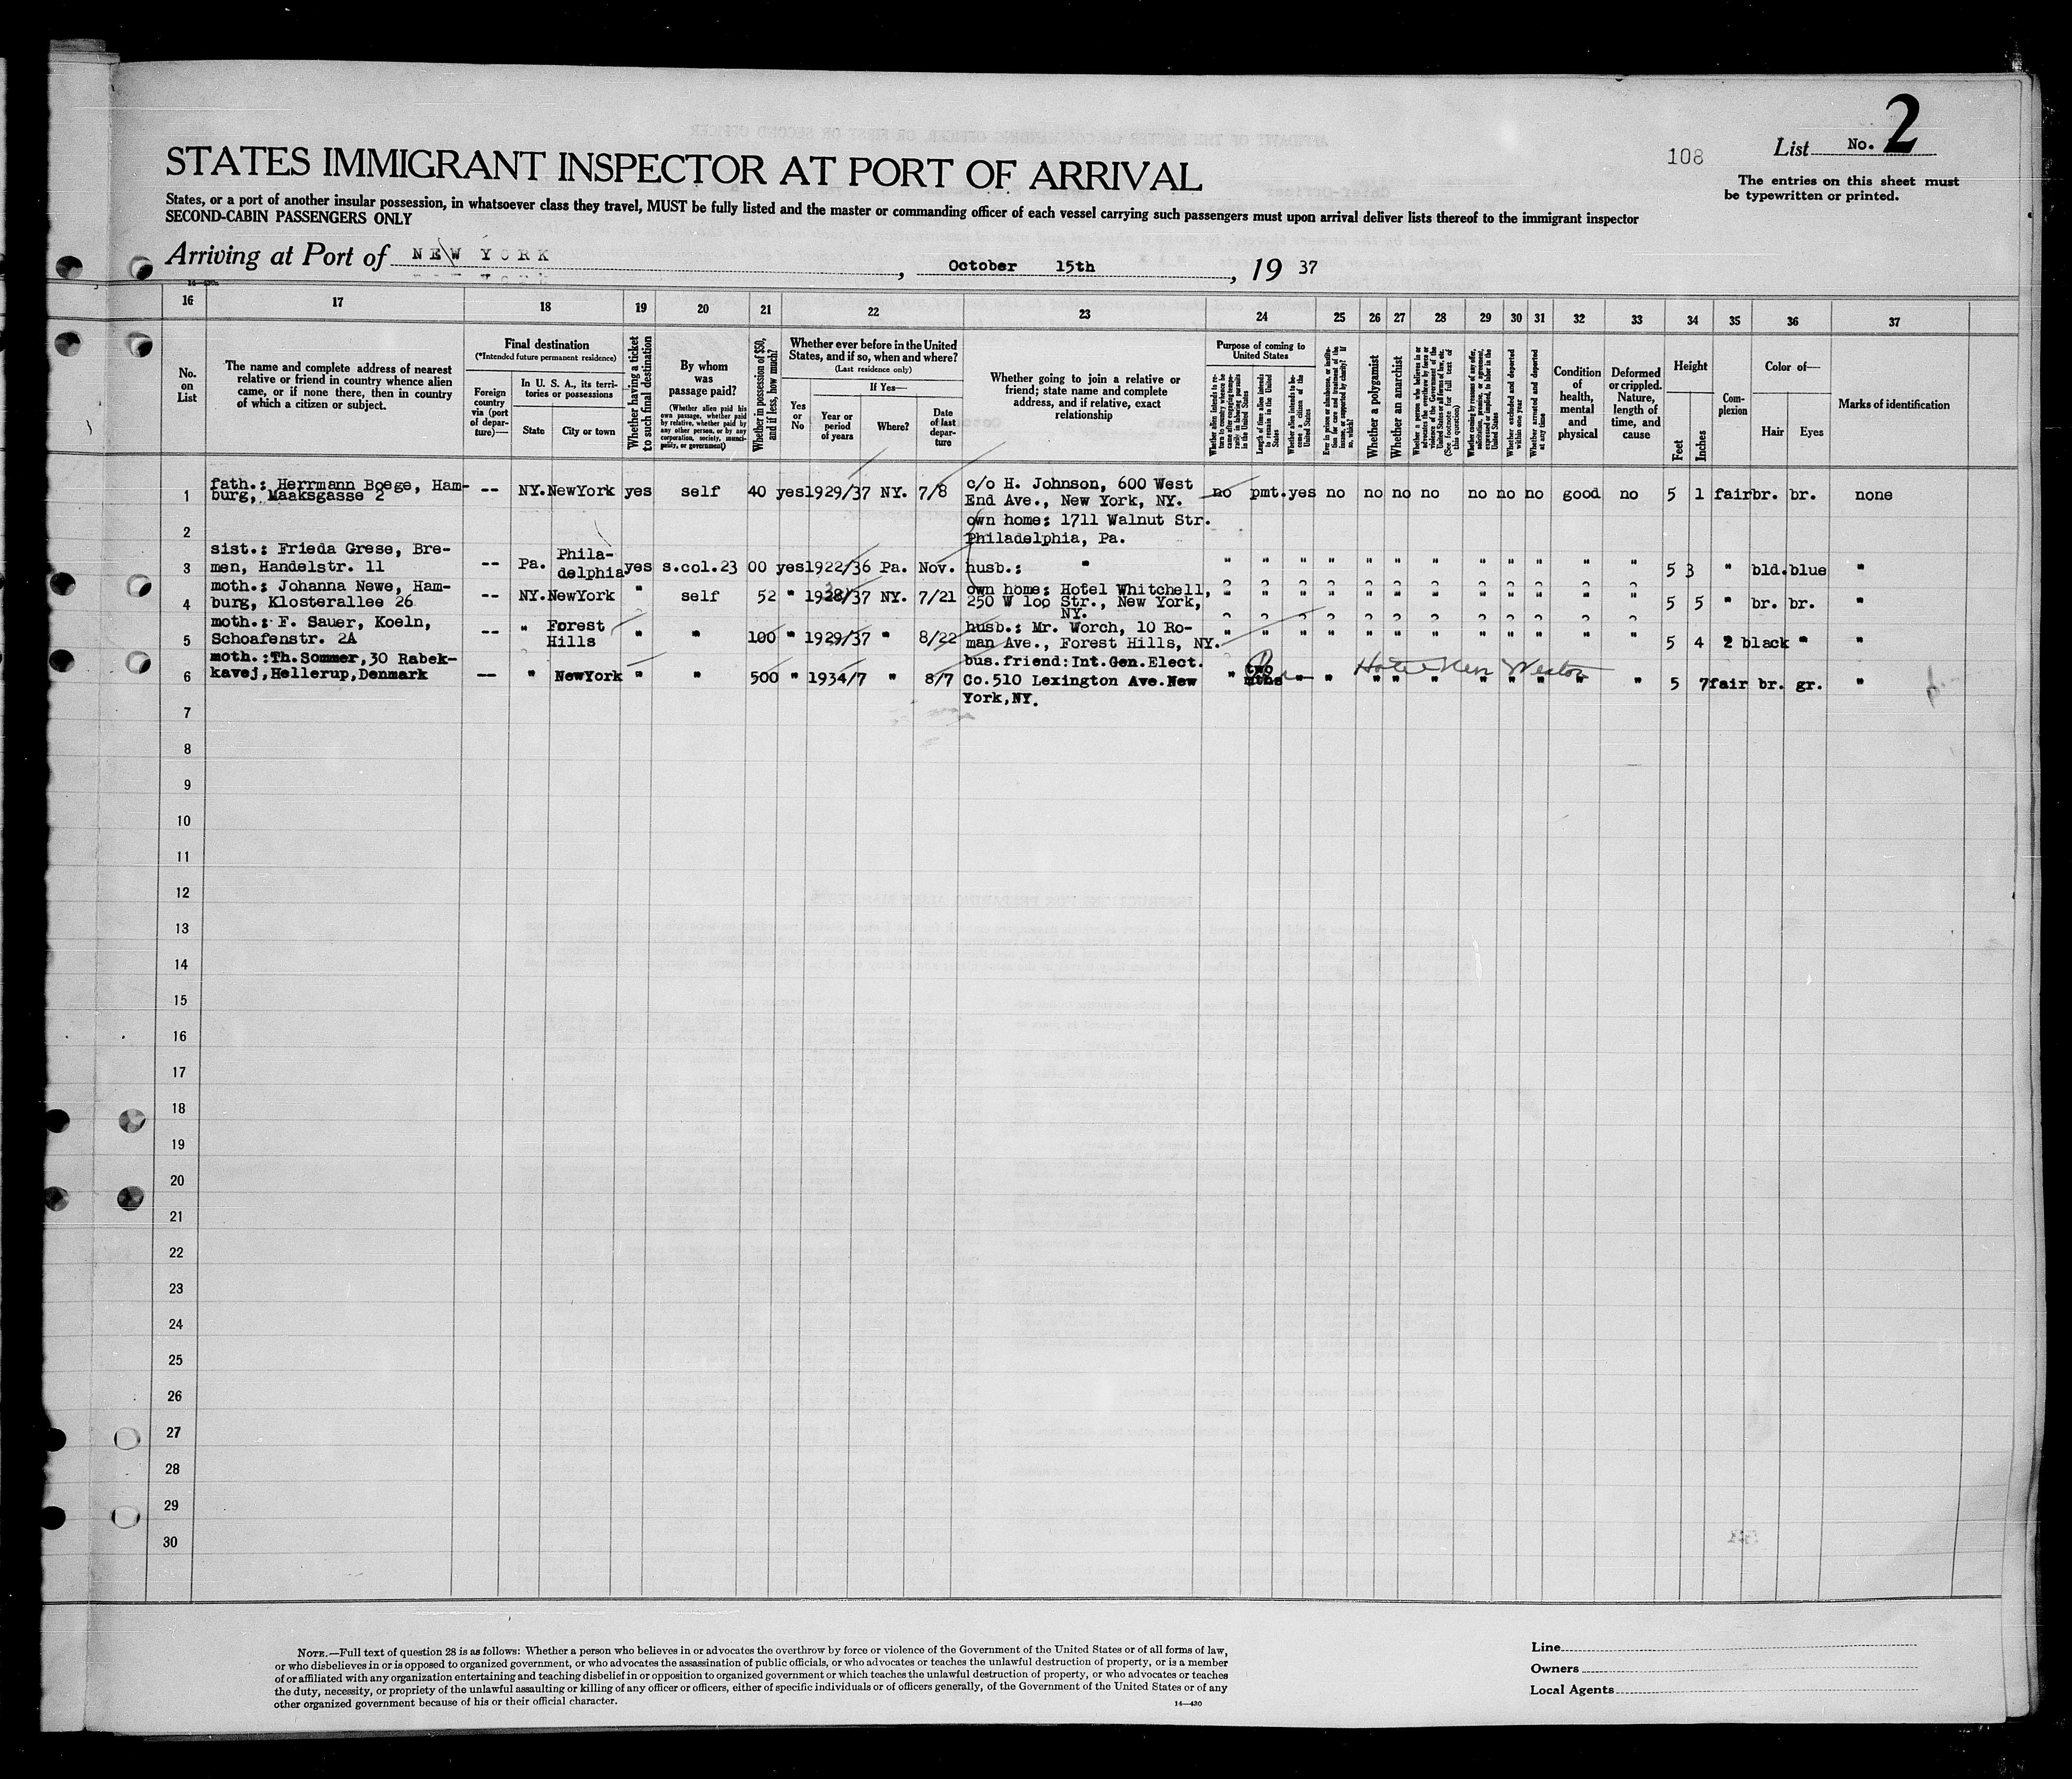 108
List No. 2
The entries on this sheet must
be typewritten or printed.
STATES IMMIGRANT INSPECTOR AT PORT OF ARRIVAL
States, or a port of another insular possession, in whatsoever class they travel, MUST be fully listed and the master or commanding officer of each vessel carrying such passengers must upon arrival deliver lists thereof to the immigrant inspector
SECOND-CABIN PASSENGERS ONLY
Arriving at Port of NEW YORK, October 15th, 19 37
16 17 18 19 20 21 22 23 24 25 26 27 28 29 30 31 32 33 34 35 36 37
No.
on
List
The name and complete address of nearest
relative or friend in country whence alien
came, or if none there, then in country
of which a citizen or subject.
Final destination
(*Intended future permanent residence)
Foreign
country
via (port
of depar-
ture)—
In U. S. A., its terri-
tories or possessions
State
City or town
Whether having a ticket
to such final destination
By whom
was
passage paid?
(Whether alien paid his
own passage, whether paid
by relative, whether paid by
any other person, or by any
corporation, society, munici-
pality, or government)
Whether in possession of $50,
and if less, how much?
Whether ever before in the United
States, and if so, when and where?
(Last residence only)
Yes
or
No
If Yes—
Year or
period
of years
Where?
Date
of last
depar-
ture
Whether going to join a relative or
friend; state name and complete
address, and if relative, exact
relationship
Purpose of coming to
United States
Whether alien intends to re-
turn to country whence he
came after engaging tempo-
rarily in laboring pursuits
in the United States
Length of time alien intends
to remain in the United
States
Whether alien intends to be-
come a citizen of the
United States
Ever in prison or almshouse, or institu-
tion for care and treatment of the
insane, or supported by charity? If
so, which?
Whether a polygamist
Whether an anarchist
Whether a person who believes in or
advocates the overthrow by force or
violence of the Government of the
United States or all forms of law, etc.
(See footnote for full text of
this question)
Whether coming by reason of any offer,
solicitation, promise, or agreement,
expressed or implied, to labor in the
United States
Whether excluded and deported
within one year
Whether arrested and deported
at any time
Condition
of
health,
mental
and
physical
Deformed
or crippled.
Nature,
length of
time, and
cause
Height
Feet
Inches
Com-
plexion
Color of—
Hair
Eyes
Marks of identification
1 fath.: Herrmann Boege, Ham-
burg, Maaksgasse 2 -- NY. NewYork yes self 40 yes 1929/37 NY. 7/8 c/o H. Johnson, 600 West
End Ave., New York, NY. no pmt. yes no no no no no no no good no 5 1 fair br. br. none
2 own home: 1711 Walnut Str.
Philadelphia, Pa.
3 sist.: Frieda Grese, Bre-
men, Handelstr. 11 -- Pa. Phila-
delphia yes s.col. 23 00 yes 1922/36 Pa. Nov. husb.: " " " " " " " " " " " " " 5 3 " bld. blue "
4 moth.: Johanna Newe, Ham-
burg, Klosterallee 26 -- NY. NewYork " self 52 " 1928/37 NY. 7/21 own home: Hotel Whitchell,
250 W 100 Str., New York,
NY. " " " " " " " " " " " " 5 5 " br. br. "
5 moth.: F. Sauer, Koeln,
Schoafenstr. 2A -- " Forest
Hills " " 100 " 1929/37 " 8/22 husb.: Mr. Worch, 10 Ro-
man Ave., Forest Hills, NY. " " " " " " " " " " " " 5 4 2 black " "
6 moth.: Th. Sommer, 30 Rabek-
kavej, Hellerup, Denmark -- " NewYork " " 500 " 1934/7 " 8/7 bus.friend: Int.Gen.Elect.
Co. 510 Lexington Ave. New
York, NY. " two
mths " " " " " " " " " " 5 7 fair br. gr. "
7
8
9
10
11
12
13
14
15
16
17
18
19
20
21
22
23
24
25
26
27
28
29
30
NOTE.—Full text of question 28 is as follows: Whether a person who believes in or advocates the overthrow by force or violence of the Government of the United States or of all forms of law,
or who disbelieves in or is opposed to organized government, or who advocates the assassination of public officials, or who advocates or teaches the unlawful destruction of property, or is a member
of or affiliated with any organization entertaining and teaching disbelief in or opposition to organized government or which teaches the unlawful destruction of property, or who advocates or teaches
the duty, necessity, or propriety of the unlawful assaulting or killing of any officer or officers, either of specific individuals or of officers generally, of the Government of the United States or of any
other organized government because of his or their official character.
14—430
Line
Owners
Local Agents